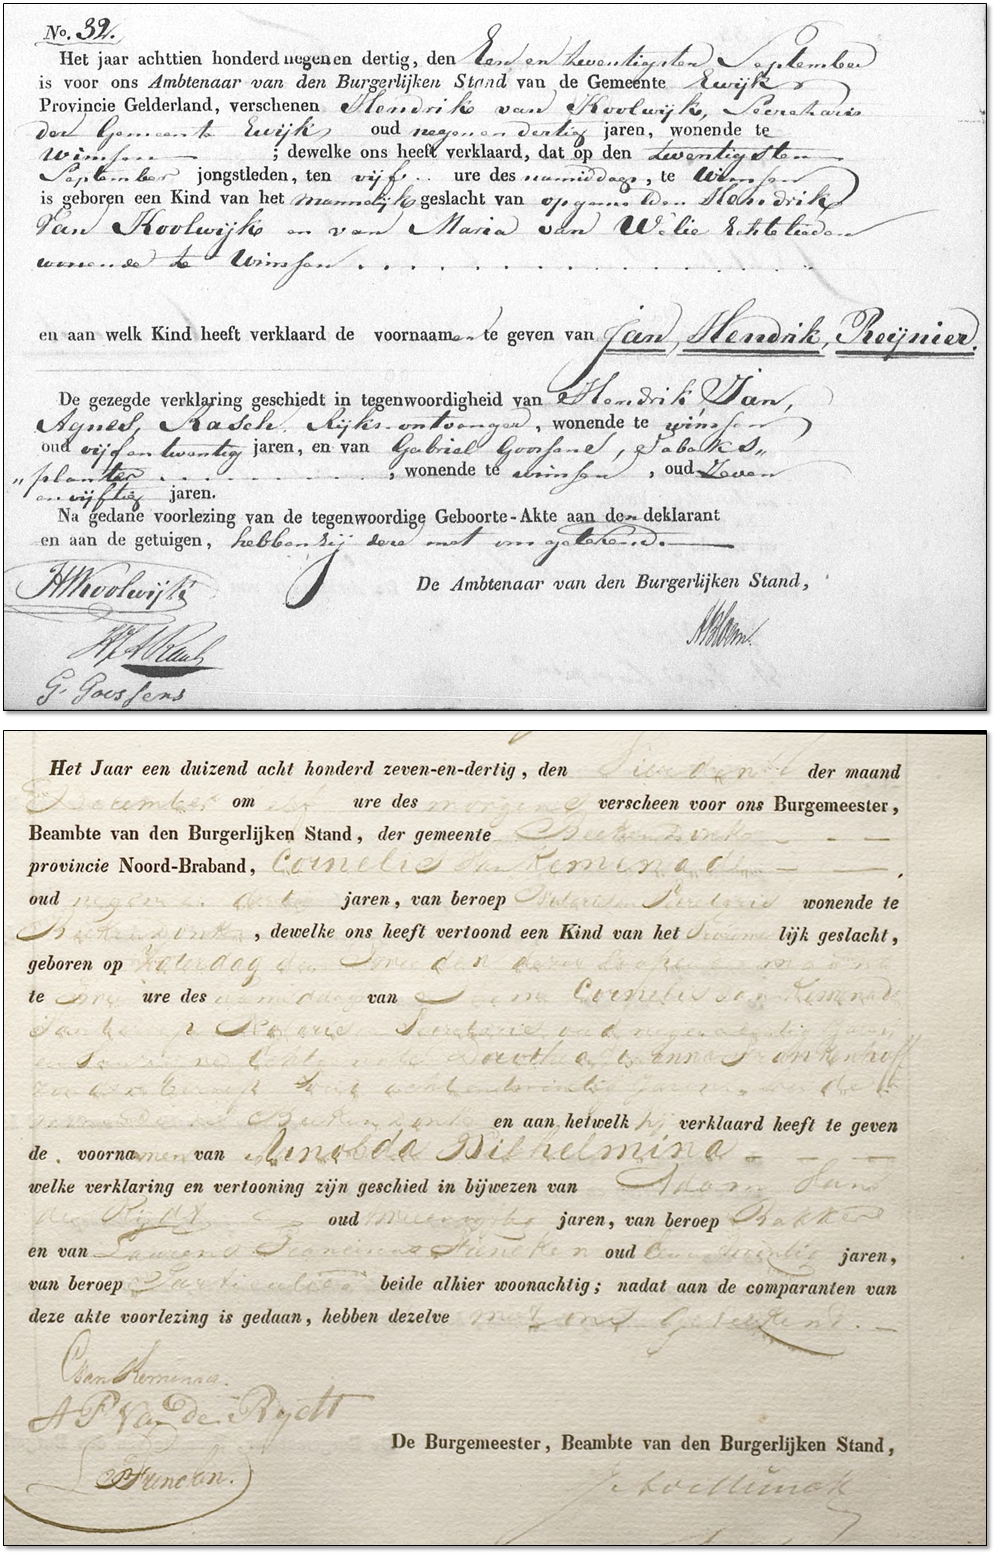 No. 32.
Het jaar achttien honderd negenen dertig, den Een en twentigsten September
is voor ons Ambtenaar van den Burgerlijken Stand van de Gemeente Ewijk
Provincie Gelderland, verschenen Hendrik van Koolwijk, Secretaris
der Gemeente Ewijk oud negen en dertig jaren, wonende te
Winssen ; dewelke ons heeft verklaard, dat op den twentigsten
September jongstleden, ten vijf ure des namiddags, te Winssen
is geboren een Kind van het mannelijk geslacht van opgemelden Hendrik
Van Koolwijk en van Maria van Welie Echtelieden
wonende te Winssen
en aan welk Kind heeft verklaard de voornaamen te geven van Jan, Hendrik, Reijnier.
De gezegde verklaring geschiedt in tegenwoordigheid van Hendrik Jan,
Agnes, Rasch, Rijks-ontvanger, wonende te winssen
oud vijf en twentig jaren, en van Gabriel Goossens, Tabaks„
„planter , wonende te winssen , oud Zeven
en vijftig jaren.
Na gedane voorlezing van de tegenwoordige Geboorte-Akte aan den deklarant
en aan de getuigen, hebben zij deze met ons getekend.
De Ambtenaar van den Burgerlijken Stand,
HVKoolwijk
HJARasch
G. Goossens
Het Jaar een duizend acht honderd zeven-en-dertig, den der maand
December om elf ure des morgens verscheen voor ons Burgemeester,
Beambte van den Burgerlijken Stand, der gemeente Beek en Donk
provincie Noord-Braband, Cornelis van Kemenade
oud negen en dertig jaren, van beroep Notaris en Secretaris wonende te
Beek en Donk, dewelke ons heeft vertoond een Kind van het Vrouwelijk geslacht,
geboren op Zaturdag den dezer loopende maand
te ure des namiddags van Cornelis van Kemenade
van beroep Notaris en Secretaris oud negen en dertig jaren
en van zijne Echtgenote Dorothea Johanna Fronkenhoff
zonder beroep oud acht en twintig jaren
Beek en Donk en aan hetwelk hij verklaard heeft te geven
de voornamen van Arnolda Wilhelmina
welke verklaring en vertooning zijn geschied in bijwezen van Adam van
de Rijdt oud jaren, van beroep Bakker
en van Laurens Franciscus Funcken oud jaren,
van beroep Particulier beide alhier woonachtig; nadat aan de comparanten van
deze akte voorlezing is gedaan, hebben dezelve met ons Geteekend.
C van Kemenade.
A P Van De Rydt
L F Funcken.
De Burgemeester, Beambte van den Burgerlijken Stand,